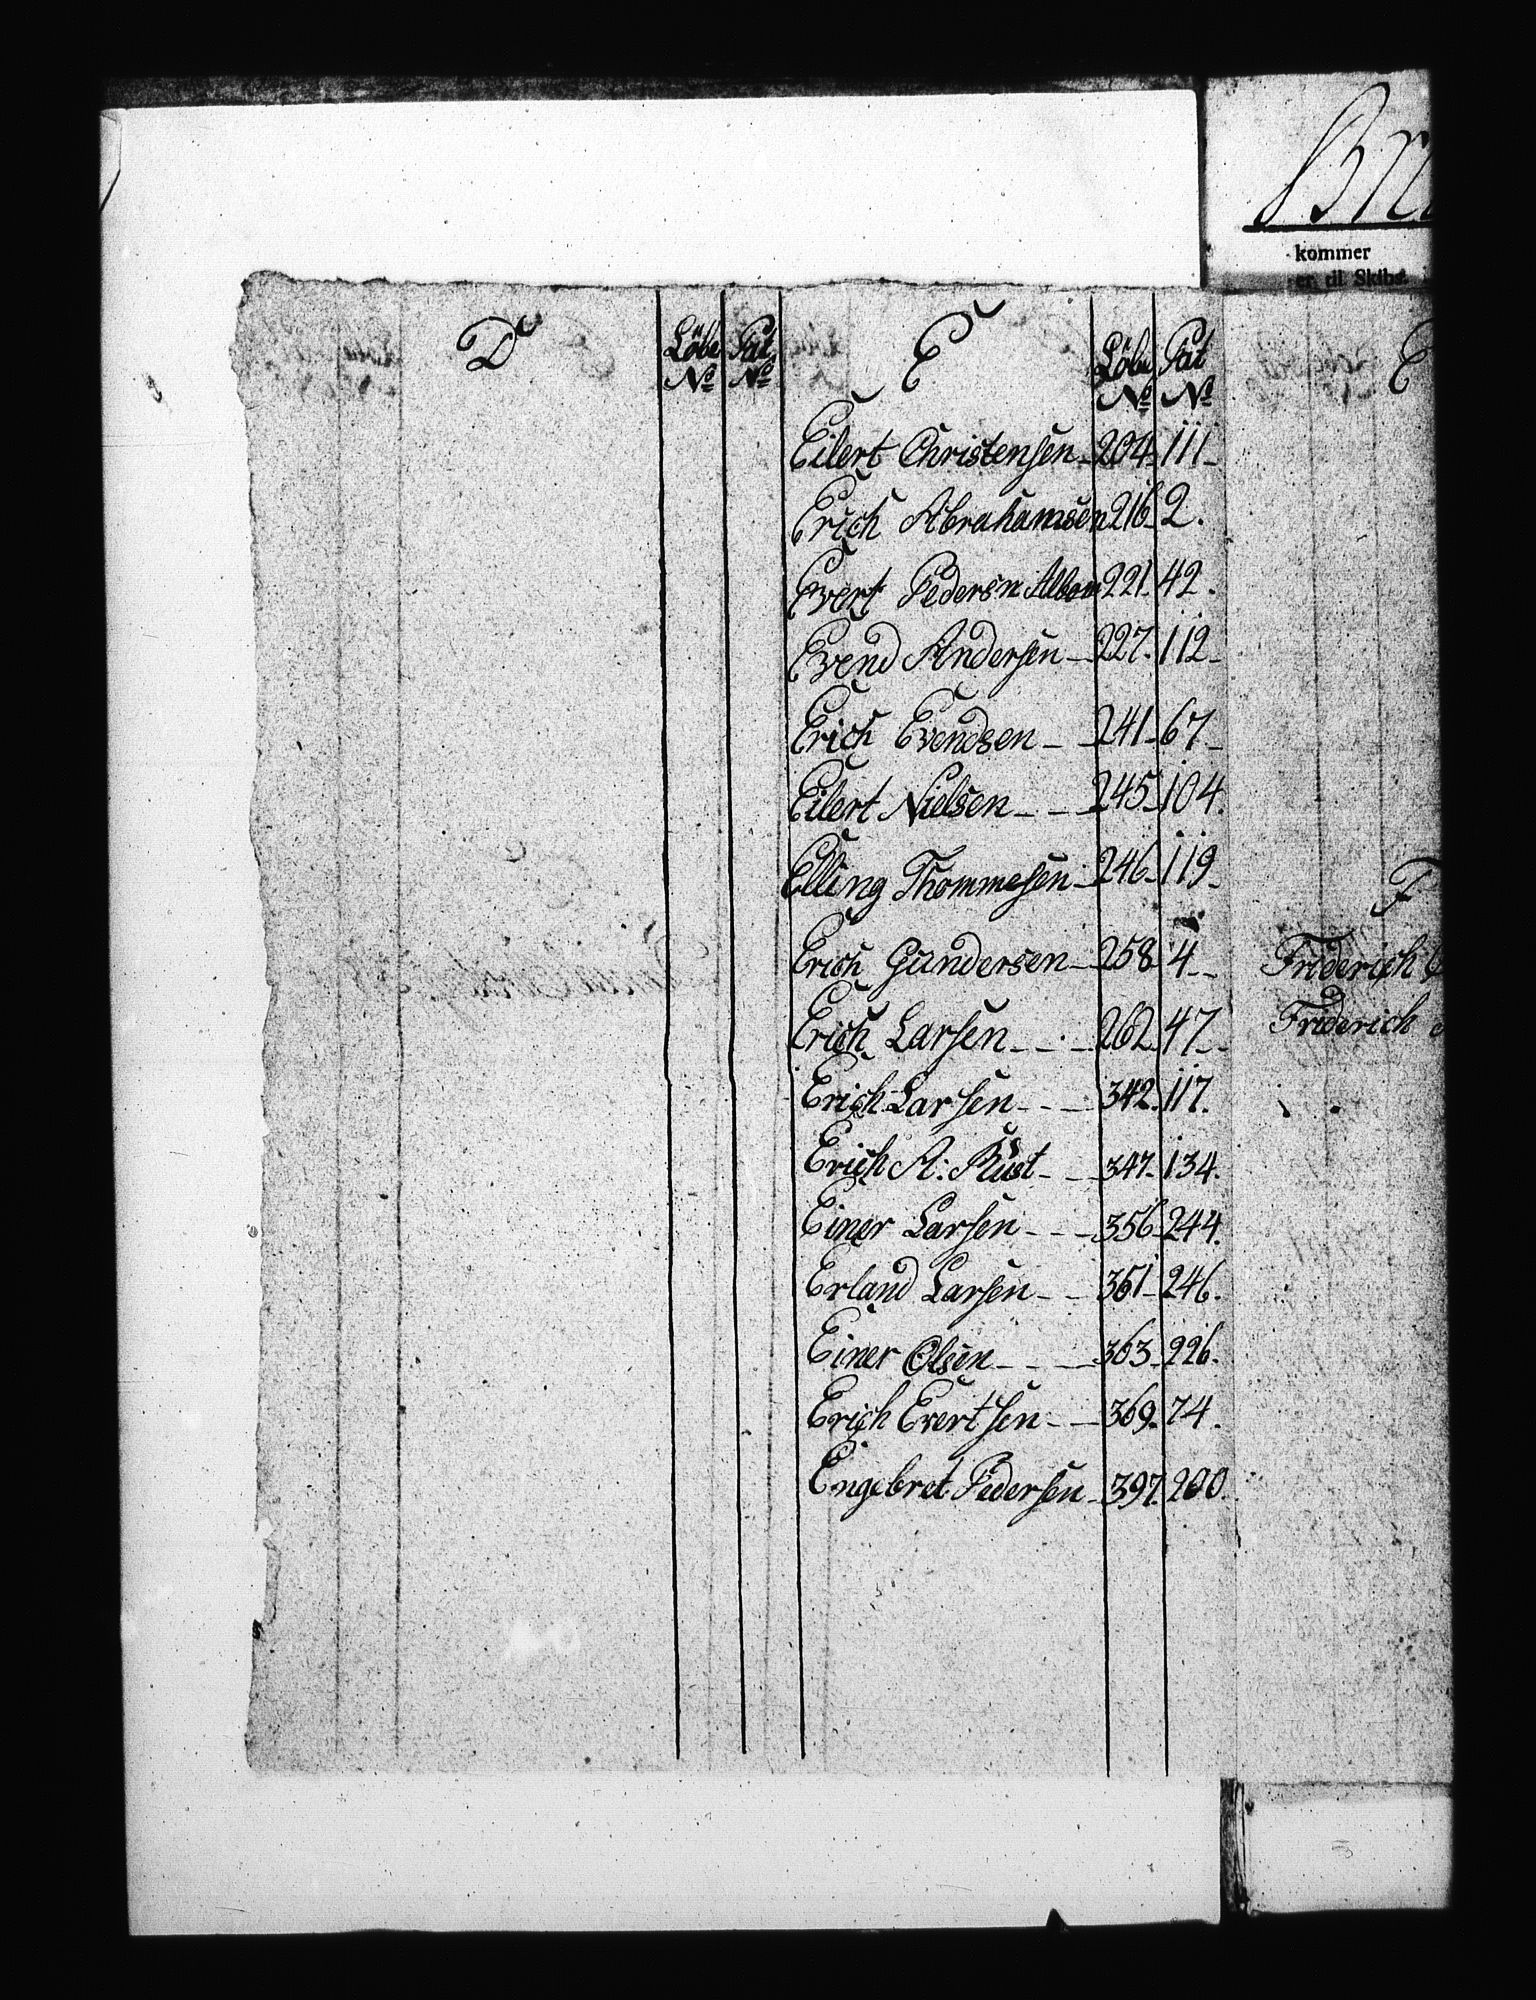 D
Löbe
No
Pat
No
E
Löbe
No
Pat
No
Eilert Christensen 204 111
Erich Abrahamsen 216 2.
Evert Pedersn 221. 42.
Evend Andersen 227. 112
Erich Evendsen 241 67
Eilert Nielsen 245 104.
Elling Thommesen 246 119
Erich Gundersen 258 4
Erich Larsen 262 47
Erich Larsen 342. 117.
Erich A: Rust 347 134.
Einer Larsen 356 244.
Erland Larsen 361 246.
Einer Olsen 363 226.
Erich Evertsen 369. 74.
Engebret Pedersen 397. 200.
kommer
er til Skibs.
E
F
Friderich
Friderich